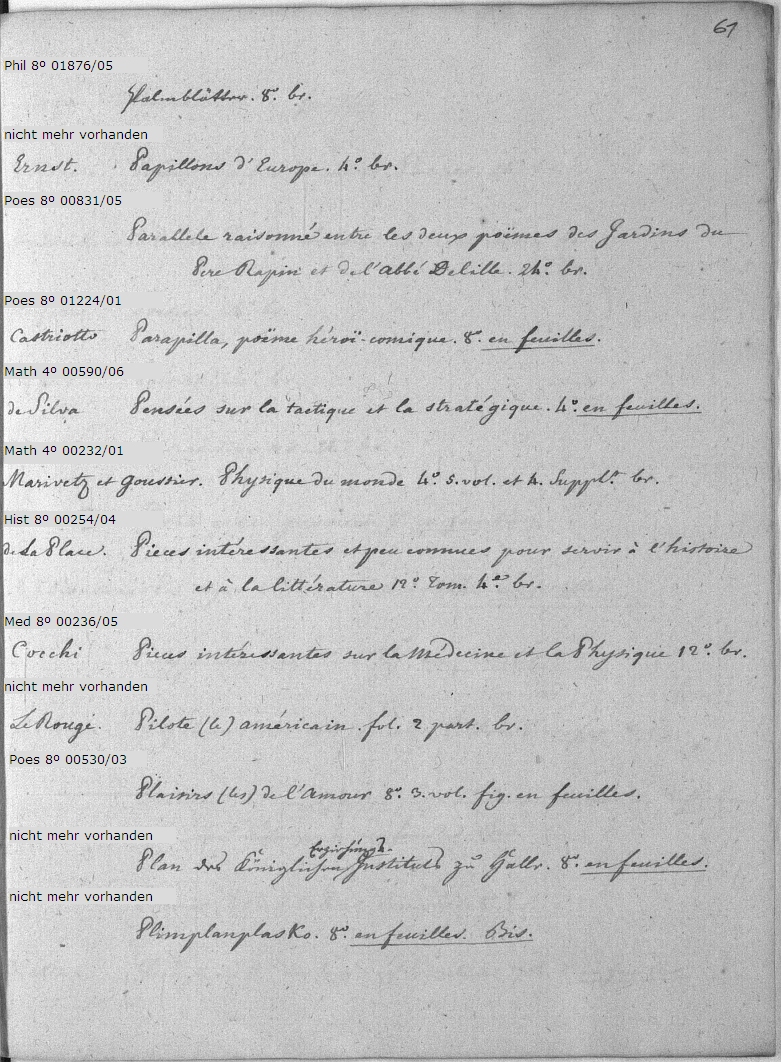 61
Phil 8º 01876/05
Palmblätter. 8º. br.
nicht mehr vorhanden
Ernst. Papillons d'Europe. 4º br.
Poes 8º 00831/05
Parallele raisonné entre les deux poëmes des Jardins du
Pere Rapin et de l'abbé Delille. 24º. br.
Poes 8º 01224/01
Castriotto Parapilla, poëme héroï-comique. 8º. en feuilles.
Math 4º 00590/06
de Silva Pensées sur la tactique et la stratégique. 4º. en feuilles.
Math 4º 00232/01
Marivetz et Goussier. Physique du monde 4º. 5. vol. et 4. Supplt. br.
Hist 8º 00254/04
de La Place. Pieces intéressantes et peu connues pour servir à l'histoire
et à la littérature 12º. Tom. 4e. br.
Med 8º 00236/05
Cocchi Pieces intéressantes sur la Médecine et la Physique 12º. br.
nicht mehr vorhanden
Le Rouge. Pilote (le) américain. fol. 2 part. br.
Poes 8º 00530/03
Plaisirs (les) de l'Amour 8º. 3. vol. fig. en feuilles.
nicht mehr vorhanden
Erziehungs-
Plan des Königlichen Instituts zu Halle. 8º. en feuilles.
nicht mehr vorhanden
Plimplamplasko. 8º. en feuilles. Bis.